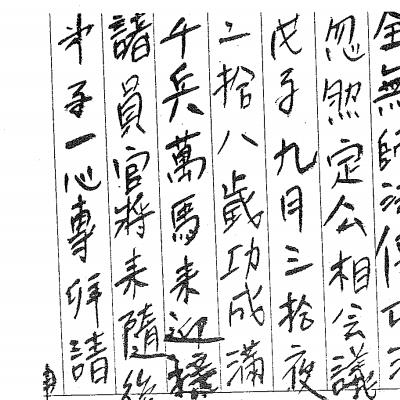 全無師法傳
忽然定公相会議
戊子九月三拾夜
二拾八歲功成滿
千兵萬馬来迎接
諸員官将来隨後
弟子一心專拜請